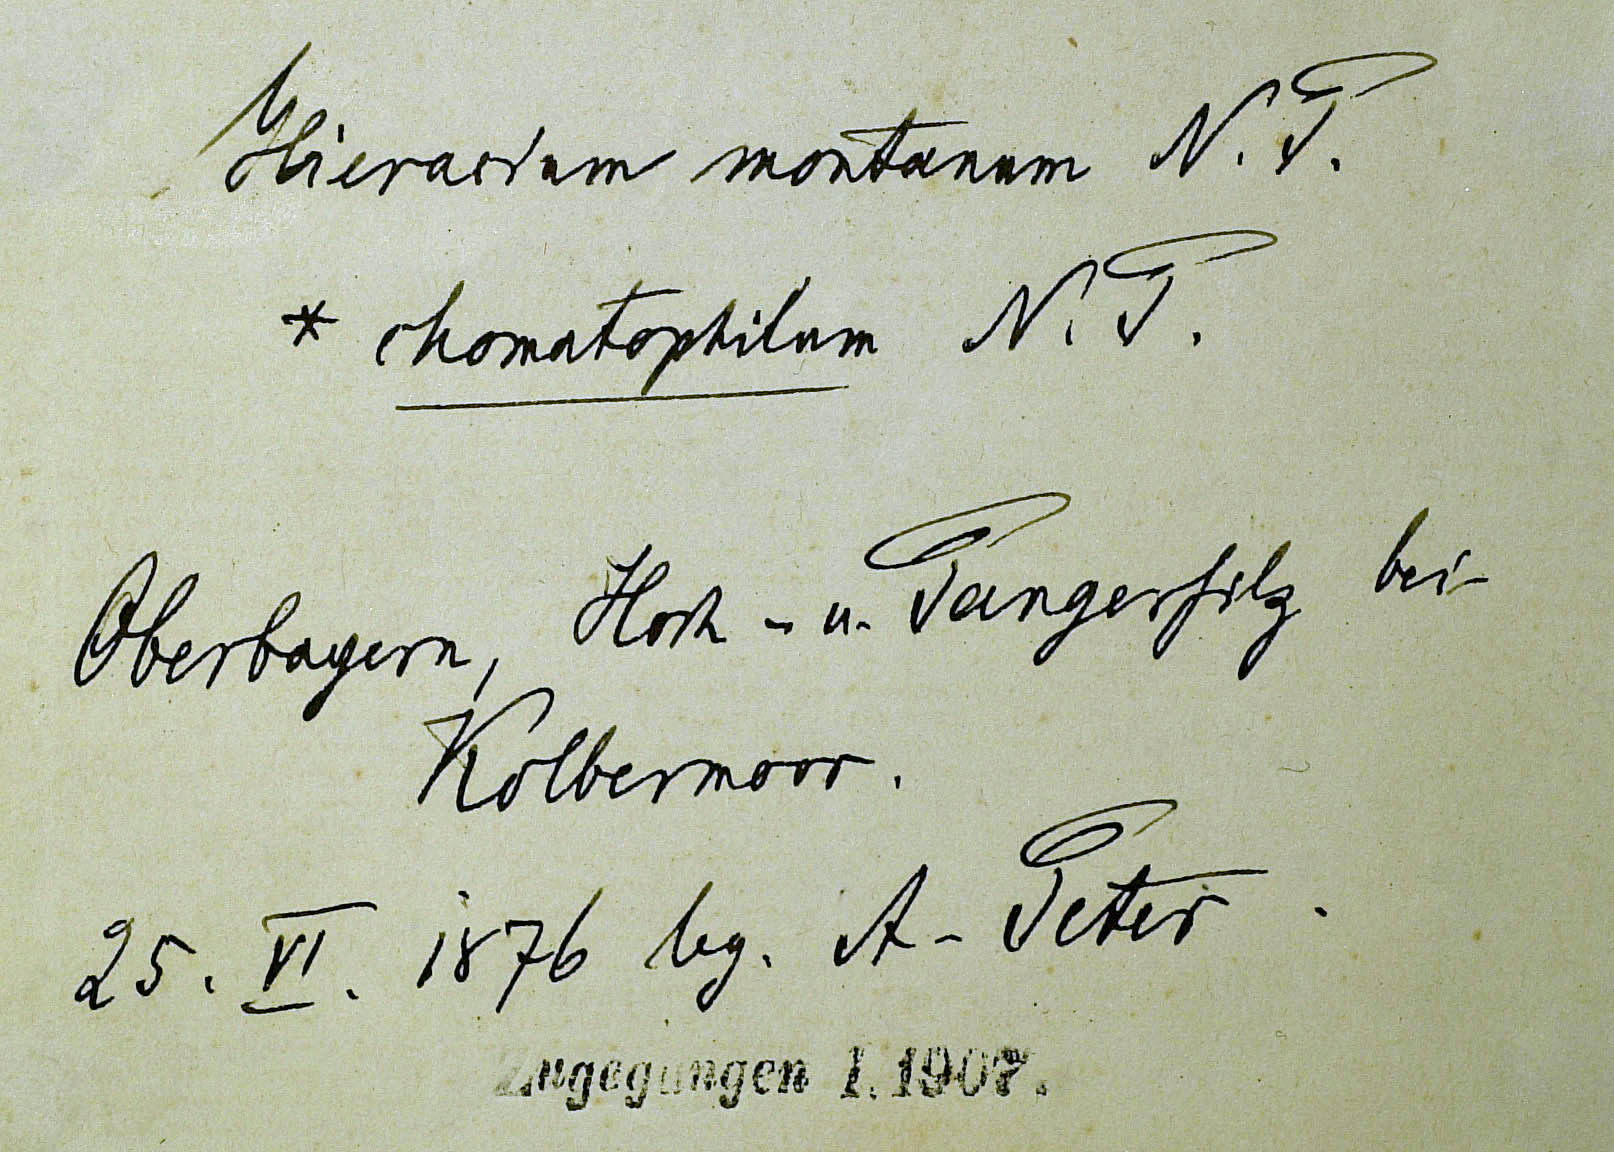 Hieracium montanum N. P.
* chomatophilum N. P.
Oberbayern, Hoch- u. Pangerfilz bei
Kolbermoor.
25. VI. 1876 leg. A. Peter.
Zugegangen I. 1907.